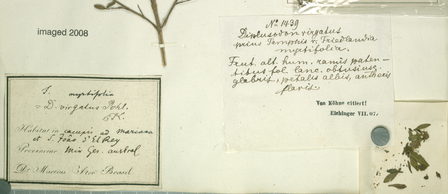 imaged 2008
No 1439
Diplusodon virgatus
prius Pemphis v. Friedlandia
myrtifolia.
Frut. alt. hum. ramis paten-
tibus fol. lanc. obtusiusc.
glabris, petalis albis, antheris
flavis.
Von Köhne citiert!
Eichinger VII. 07.
myrtifolia
D. virgatus Pohl.
Habitat in campis ad Marianna
et S. João d'El Rey
Provinciae Min. Ger. austral.
Dr. Martius Iter Brasil.